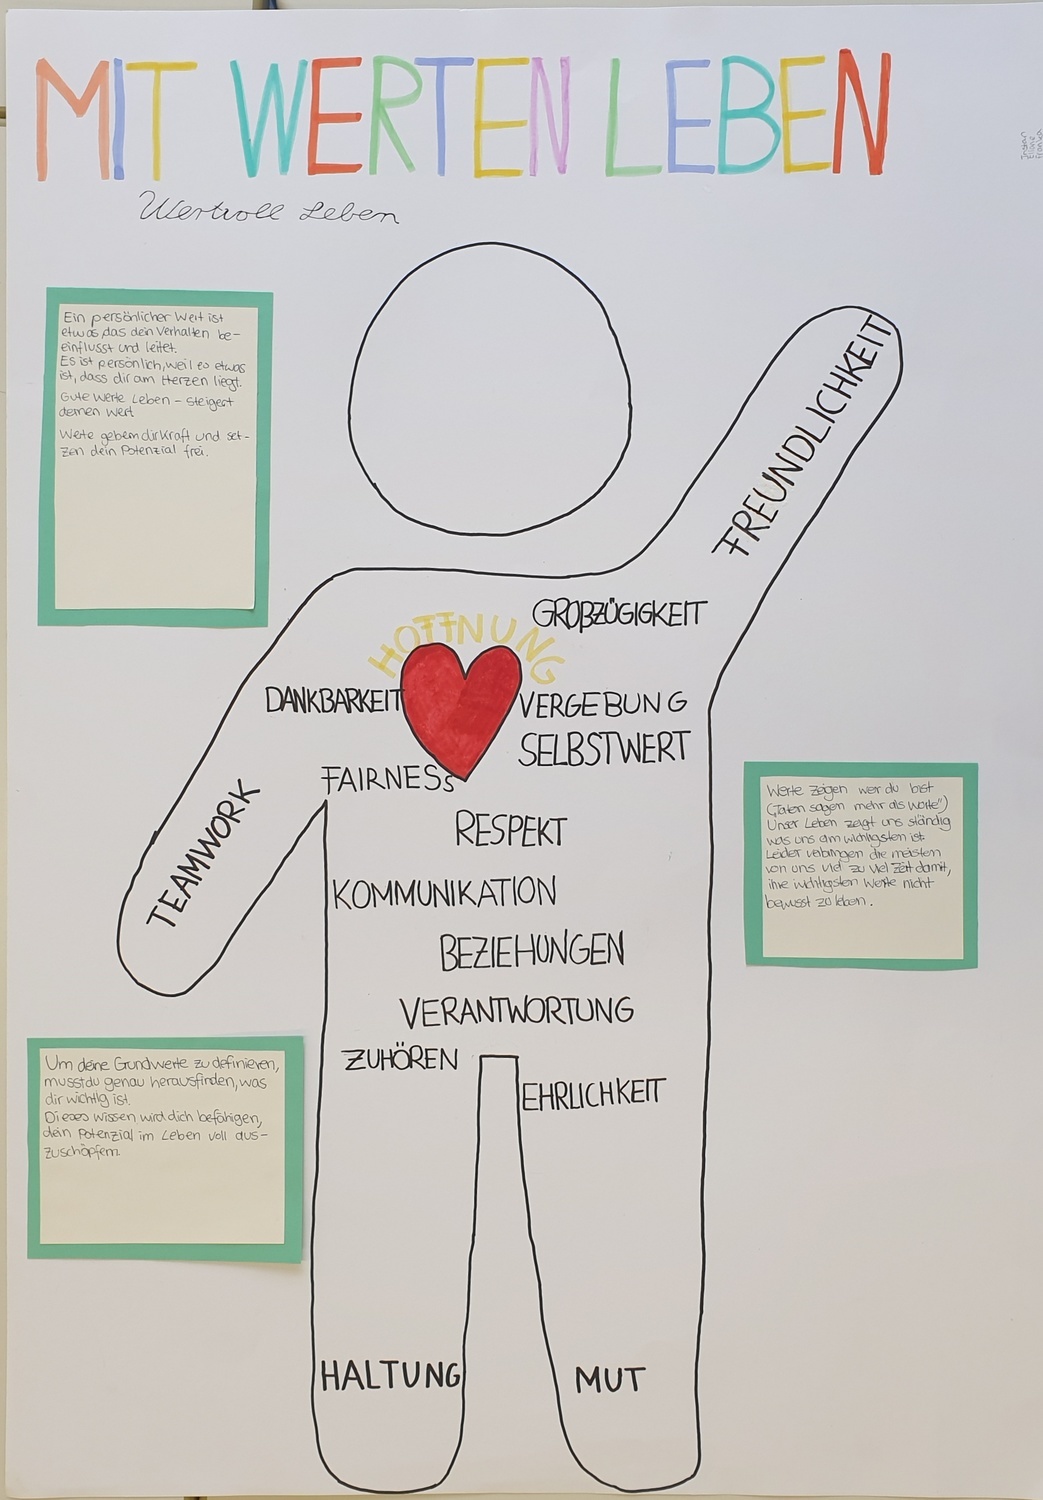 MIT WERTEN LEBEN
Wertvoll Leben
Ein persönlicher Wert ist
etwas, das dein Verhalten be-
einflusst und leitet.
Es ist persönlich, weil es etwas
ist, dass dir am Herzen liegt.
Gute Werte Leben - steigert
deinen Wert
Werte geben dir Kraft und set-
zen dein Potenzial frei.
FREUNDLICHKEIT
GROßZÜGIGKEIT
HOFFNUNG
DANKBARKEIT
VERGEBUNG
SELBSTWERT
FAIRNESS
TEAMWORK
RESPEKT
KOMMUNIKATION
BEZIEHUNGEN
VERANTWORTUNG
ZUHÖREN
EHRLICHKEIT
Werte zeigen wer du bist
(„Taten sagen mehr als Worte")
Unser Leben zeigt uns ständig
was uns am wichtigsten ist
Leider verbringen die meisten
von uns viel zu viel Zeit damit,
ihre wichtigsten Werte nicht
bewusst zu leben.
Um deine Grundwerte zu definieren,
musst du genau herausfinden, was
dir wichtig ist.
Dieses Wissen wird dich befähigen,
dein Potenzial im Leben voll aus-
zuschöpfen.
HALTUNG
MUT